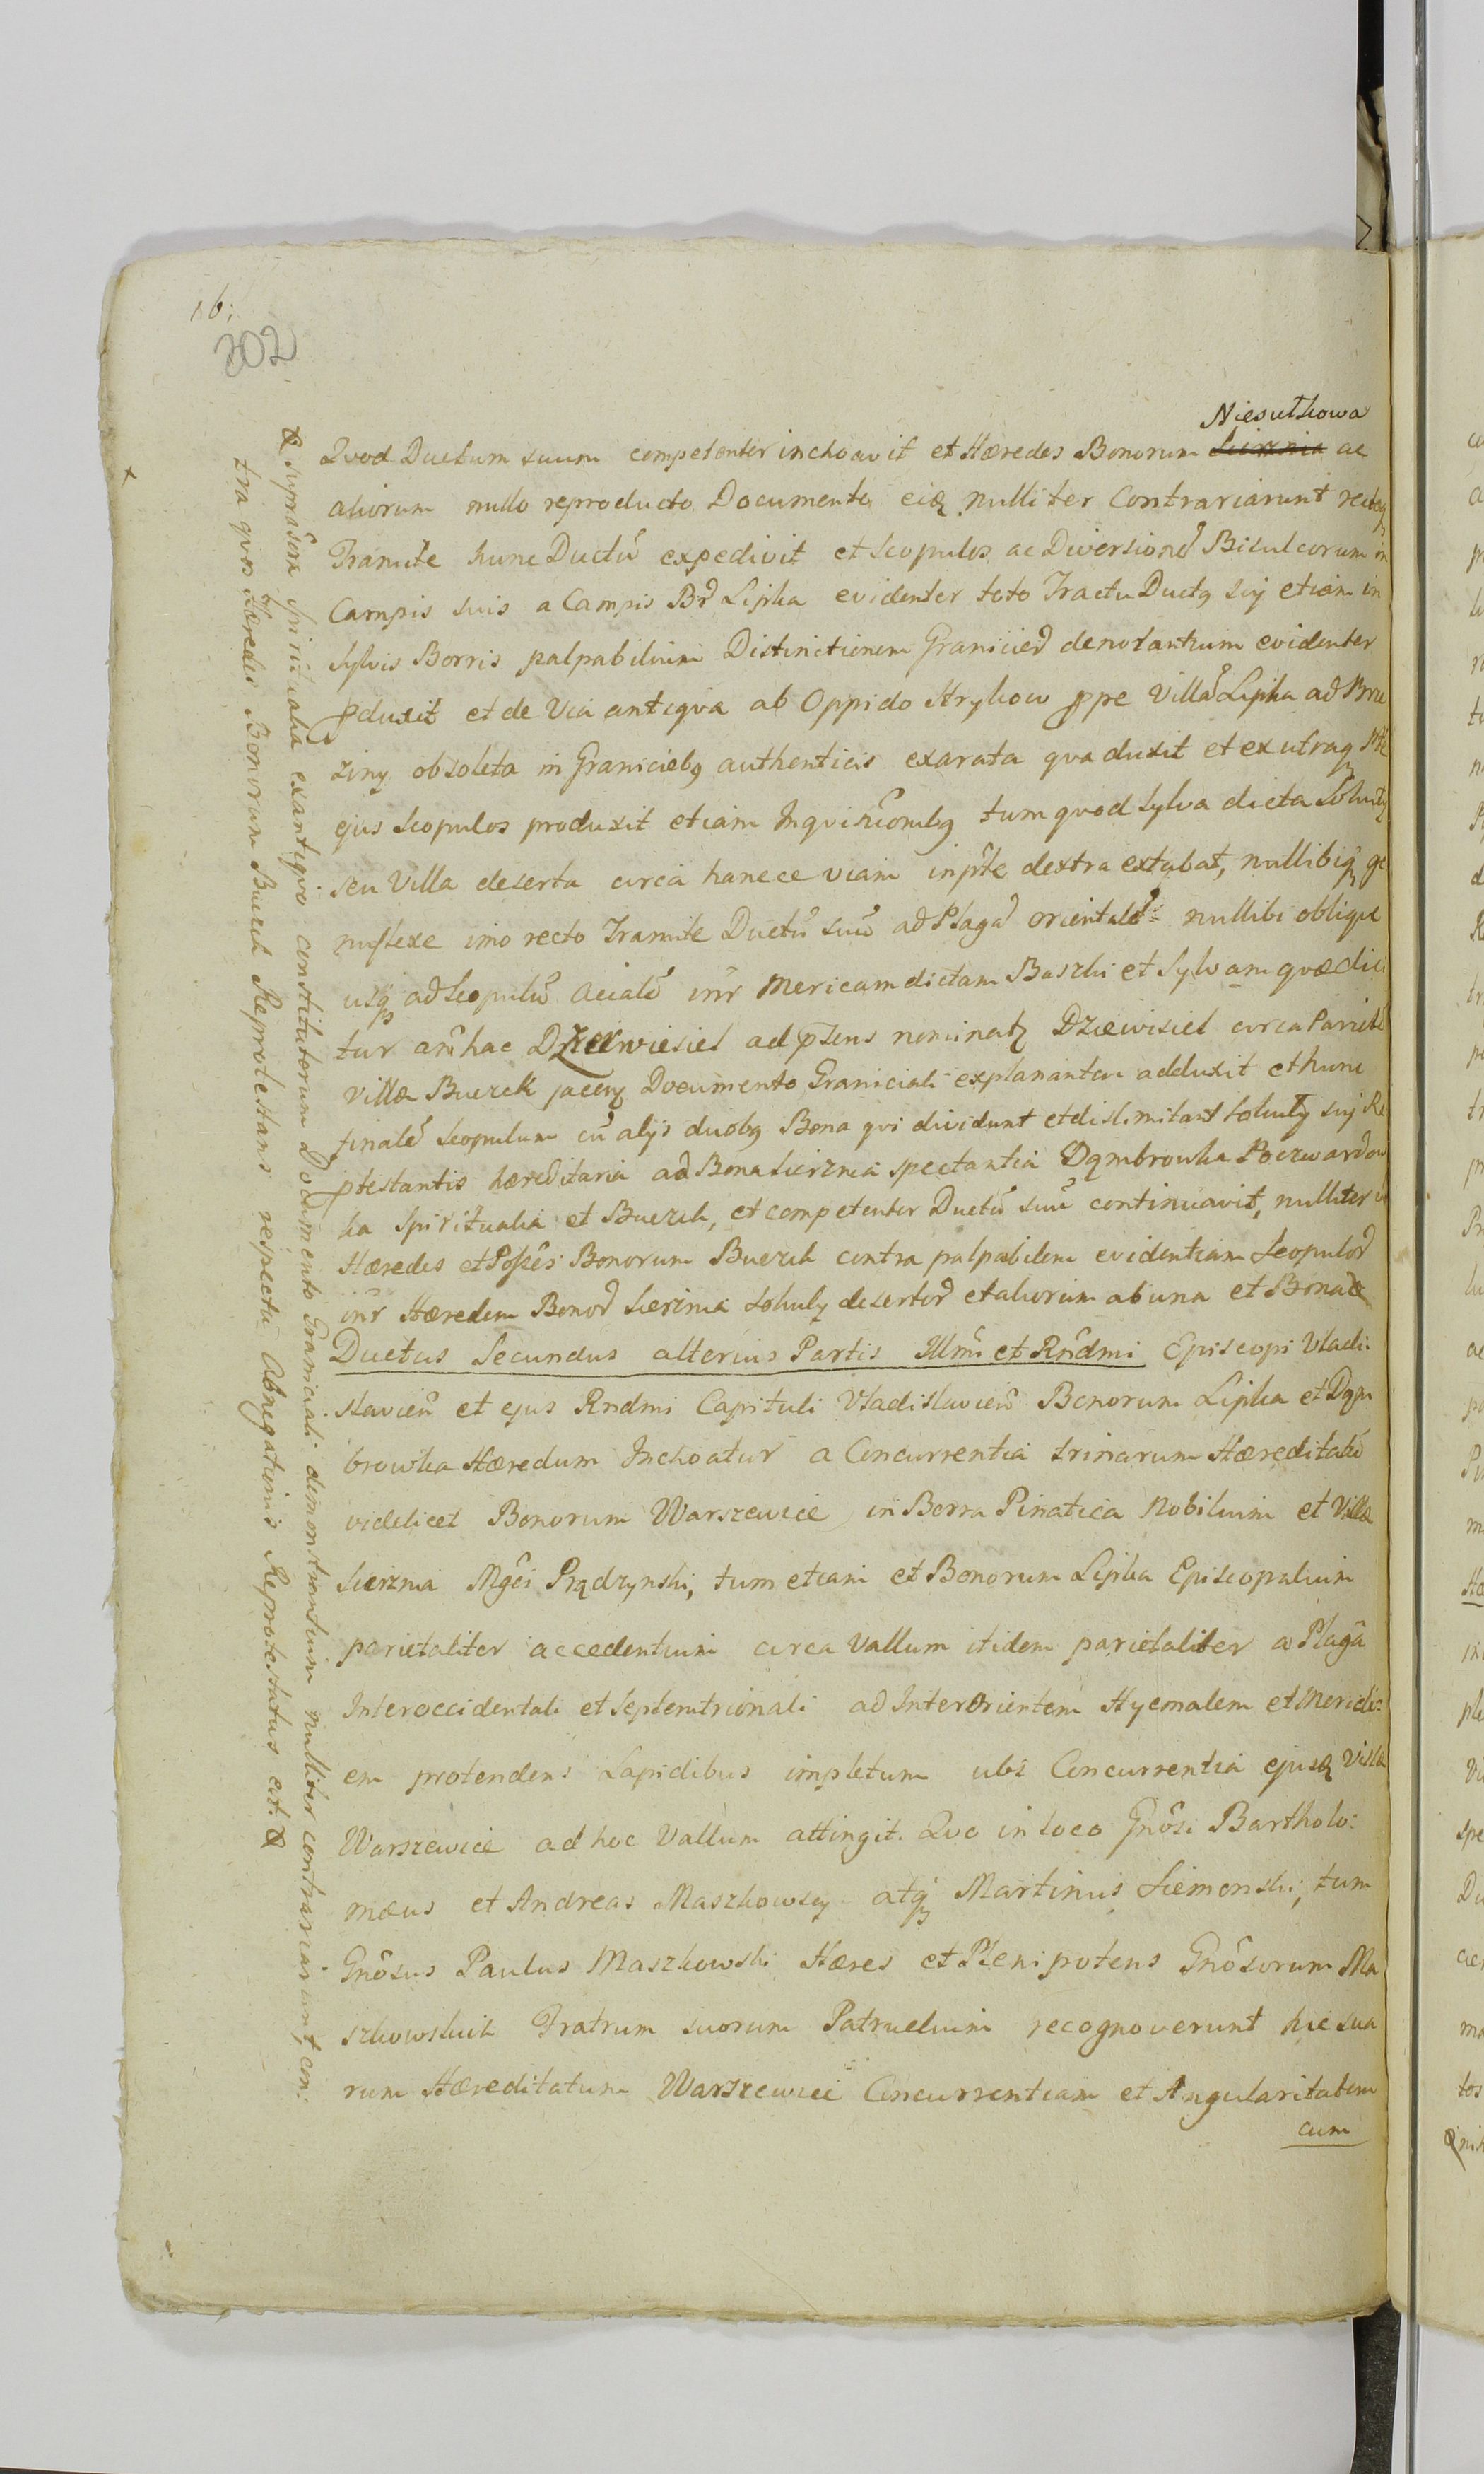 16;
302
Niesułkowa
Qvod Ductum suum competenter inchoavit et Hæredes Bonorum Sierznia ac
aliorum nullo reproducto Documento eiq nulliter Contrariarunt rectoq
Tramite hunc Ductũ expedivit et Scopulos ac Diversionẽ Bisulcorum in
Campis suis a Campis Br̃ Lipka evidenter toto Tractu Ductq sụj etiam in
Sylvis Borris palpabilium Distinctionem Granicieꝝ denotantium evidenter
pduxit et de Via antiqva ab Oppido Strykow ppe Villã Lipka ad Brze
ziny obsoleta in Graniciebq authenticis exarata qva duxit et ex utraq Pte
ejus Scopulos produxit etiam Inqvisic̃onibq tum qvod Sylva dicta Sokuły
seu Villa deserta circa hancce viam in pr̃te dextra extabat, nullibiq ge
nuflexe imo recto Tramite Ductũ suũ ad Plagã orientalẽ nullibi obliqve
usq ad Scopulũ Acialẽ int̃r Mericam dictam Baszki et Sylvam qvæ dici
tur ant̃hac Dzierwisiel ad p̃sens nominatq Dziewisiel circa Parietẽ
Villæ Buczek jacenq Documento Graniciali explanantem adduxit et hunc
finalẽ Scopulum cũ alijs duobq Bona qvi dividunt et dislimitant Sokuły suj Re
ptestantis hæreditaria ad Bona Sierznia spectantia Dąmbrowka Poczwardow
ka Spiritualia et Buczek, et competenter Ductũ suũ continuavit, nulliter
Hæredes et Possẽs Bonorum Buczek contra palpabilem evidentiam Scopuloꝝ
int̃r Hæredem Bonoꝝ Sierznia Sokuły desertoꝝ et aliorum ab una et Bona
Ductus Secundus alterius Partis Illm̃i et Rñdmi Episcopi Vladi:
slavieñ et ejus Rndmi Capituli Vladislavieñ Bonorum Lipka et Dąm
browka Hæredum Inchoatur a Concurrentia trinarum Hæreditatũ
videlicet Bonorum Warszewice in Borra Pinatica Nobilium et Villæ
Sierznia Mgc̃i Prądzynski, tum etiam et Bonorum Lipka Episcopalium
parietaliter accedentium circa Vallum itidem parietaliter a Plaga
Interoccidentali et Septemtrionali ad Interorientem Hyemalem et Meridi:
em protendens Lapidibus impletum ubi Concurrentia ejusq Villæ
Warszewice ad hoc Vallum attingit. Qvo in loco Gnõsi Bartholo:
mæus et Andreas Maszkowscy atq Martinus Siemonski, tum
Gnõsus Paulus Maszkowski Hæres et Plenipotens Gnõsorum Ma
szkowskich Fratrum suorum Patruelium recognoverunt hic sua
rum Hæreditatum Warszewice Concurrentiam et Angularitatem
cum
suprasc̃pta Spiritualia ex antiqvo constitutorum Documento Graniciali demonstrantium nulliter contrariarunt con:
tra qvos Hæredes Bonorum Buczek Reprotestans respectu Abnegationis Reprotestatus est.